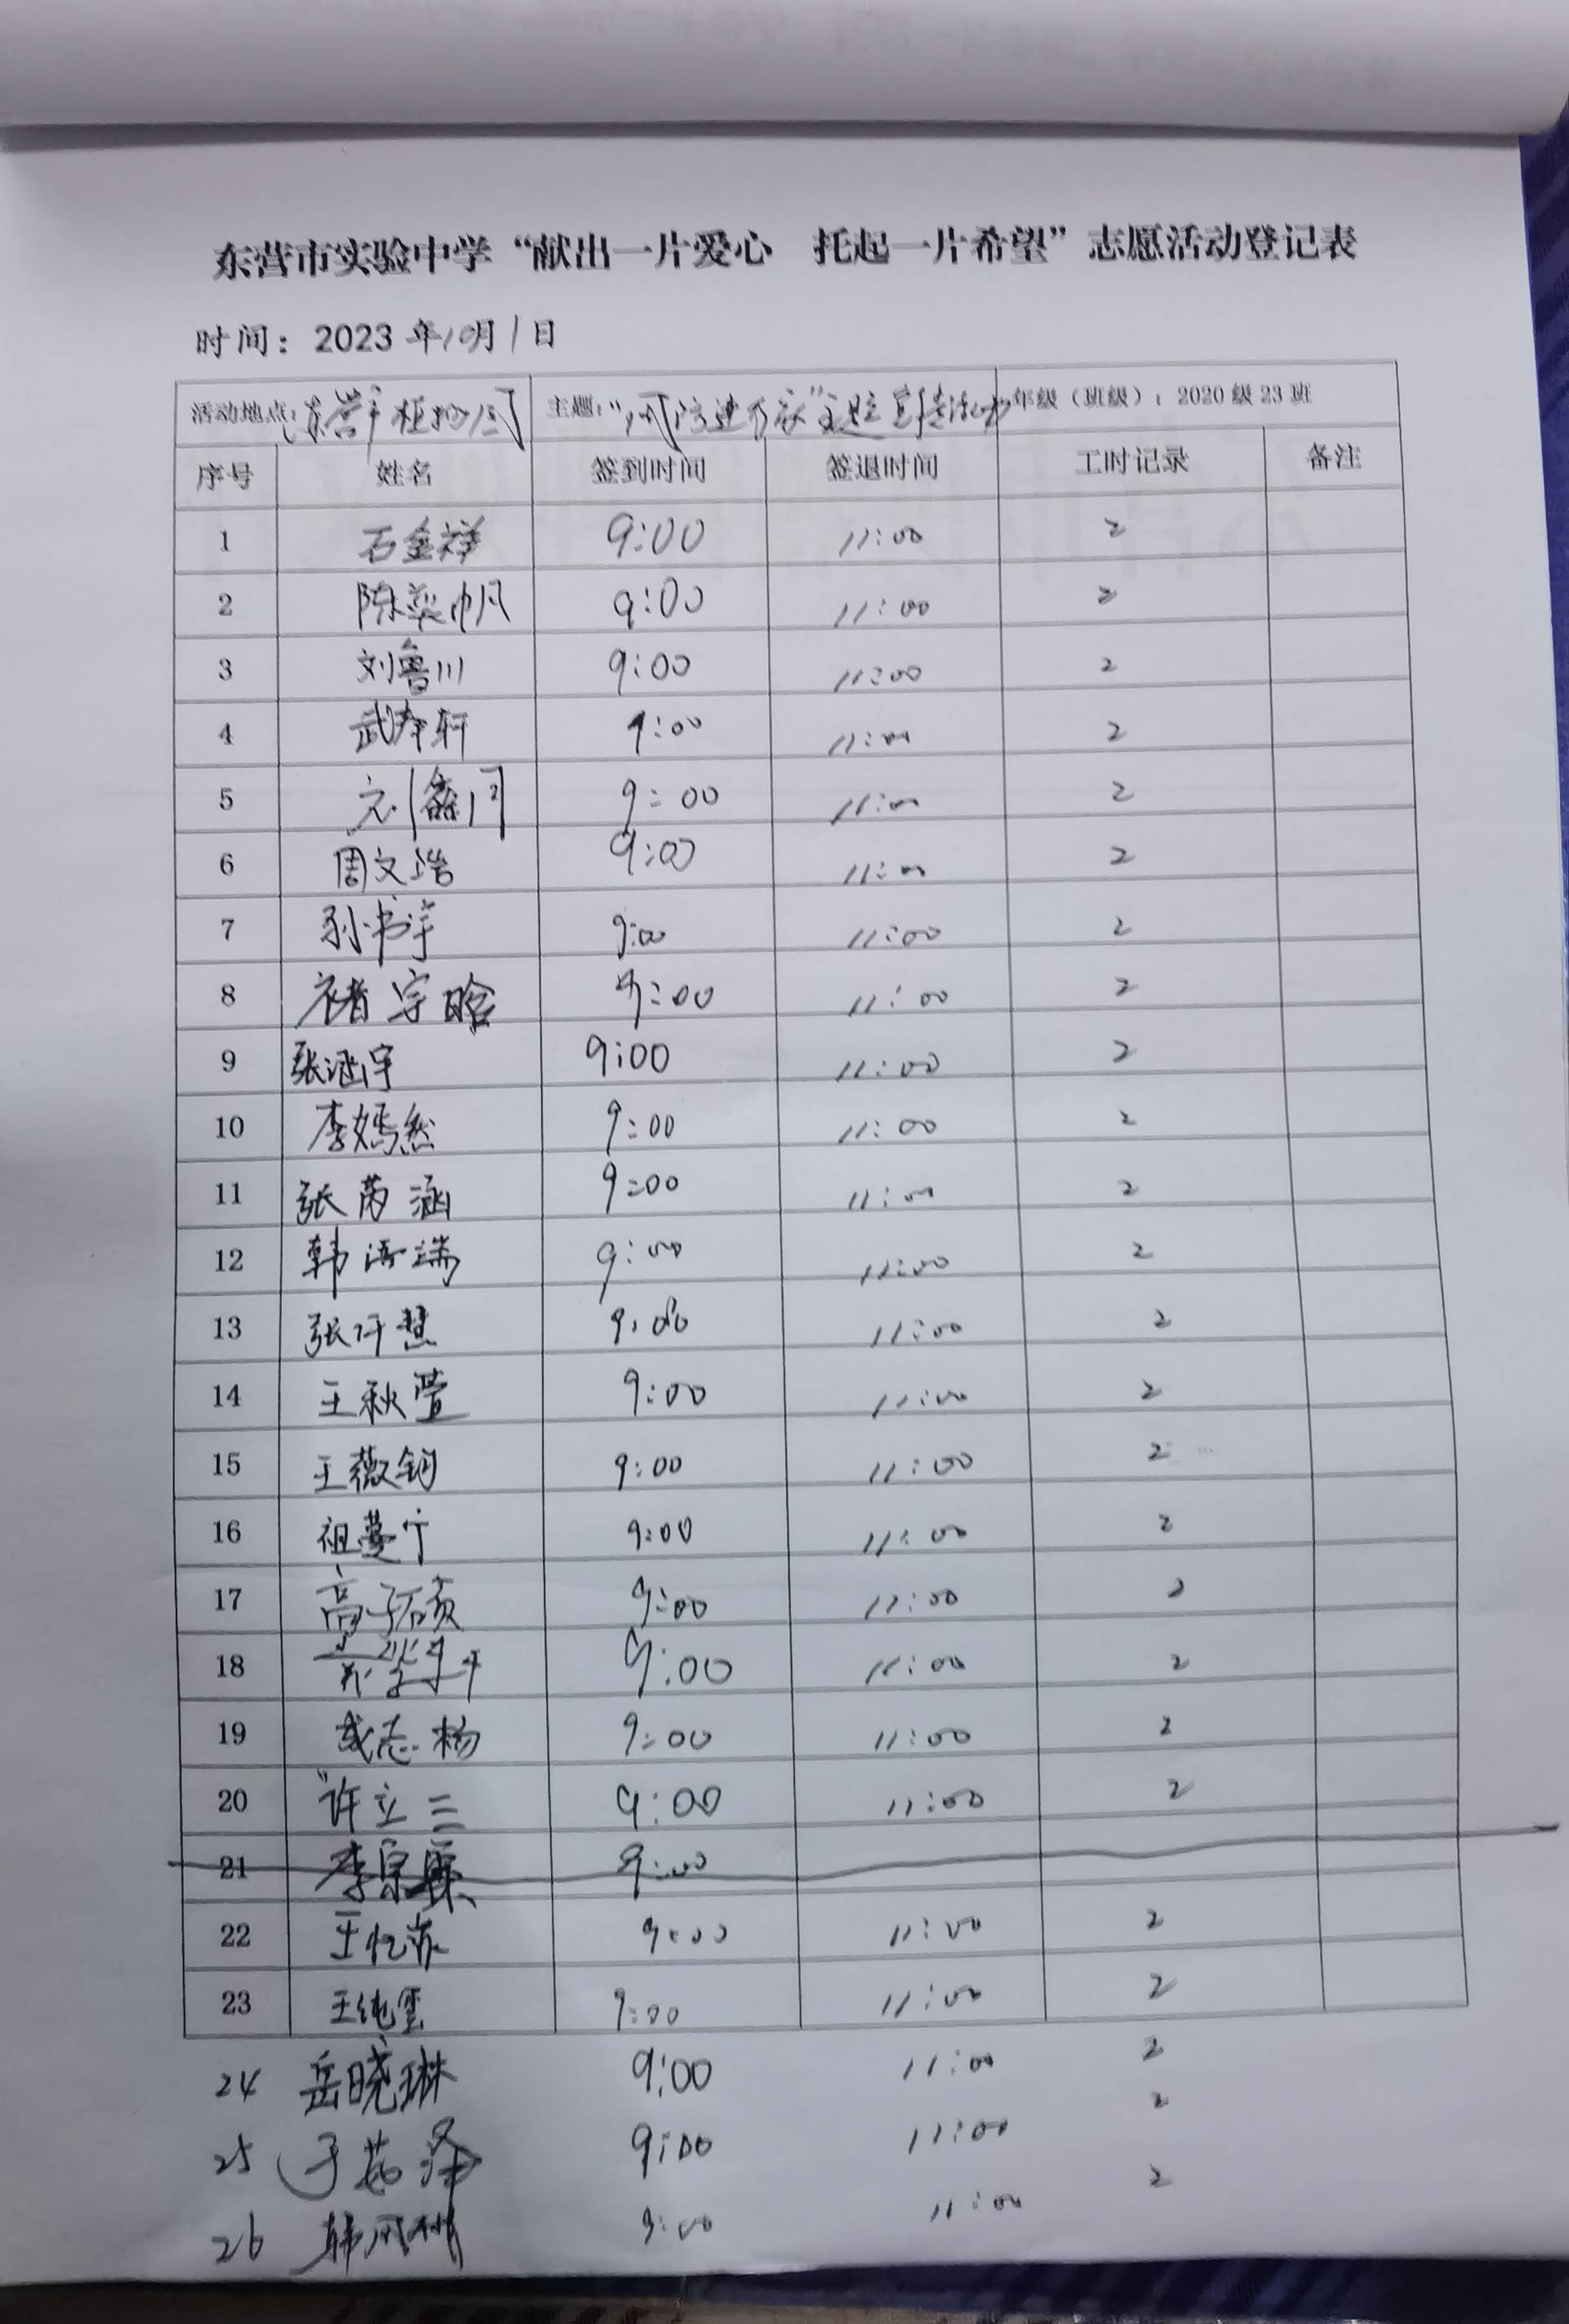 东营市实验中学“献出一片爱心 托起一片希望”志愿活动登记表
时间：2023年10月1日
活动地点：东营市植物园 主题：“进万家”主题宣传活动 年级（班级）：2020级23班
序号 姓名 签到时间 签退时间 工时记录 备注
1 石金祥 9:00 11:00 2
2 陈奕帆 9:00 11:00 2
3 刘鲁川 9:00 11:00 2
4 武 轩 9:00 11:00 2
5 9:00 11:00 2
6 周文浩 9:00 11:00 2
7 孙书宇 9:00 11:00 2
8 褚宇晗 9:00 11:00 2
9 张涵宇 9:00 11:00 2
10 李嫣然 9:00 11:00 2
11 张芮涵 9:00 11:00 2
12 韩语瑞 9:00 11:00 2
13 张仟慧 9:00 11:00 2
14 王秋莹 9:00 11:00 2
15 王薇钧 9:00 11:00 2
16 祖蔓宁 9:00 11:00 2
17 高子硕 9:00 11:00 2
18 9:00 11:00 2
19 志杨 9:00 11:00 2
20 许立三 9:00 11:00 2
21 李 9:00
22 王忆苏 9:00 11:00 2
23 王纯玺 9:00 11:00 2
24 岳晓琳 9:00 11:00 2
25 于 泽 9:00 11:00 2
26 韩 9:00 11:00 2